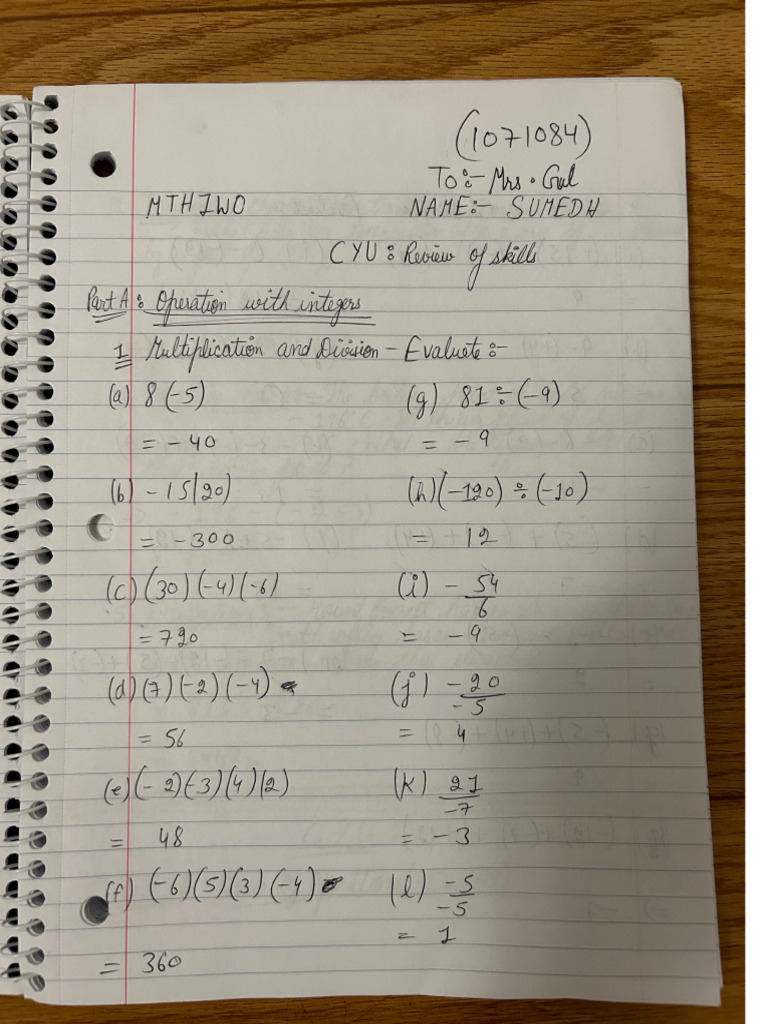 (1071084)
To:- Mrs. Gul
MTH1WO NAME:- SUMEDH
CYU: Review of skills
Part A: Operation with integers
1 Multiplication and Division - Evaluate:-
(a) 8(-5) (g) 81 ÷ (-9)
= -40 = -9
(b) -15(20) (h) (-120) ÷ (-10)
= -300 = 12
(c) (30)(-4)(-6) (i) - 54/6
= 720 = -9
(d) (7)(-2)(-4) (j) -20/-5
= 56 = 4
(e) (-2)(-3)(4)(2) (k) 21/-7
= 48 = -3
(f) (-6)(5)(3)(-4) (l) -5/-5
= 360 = 1